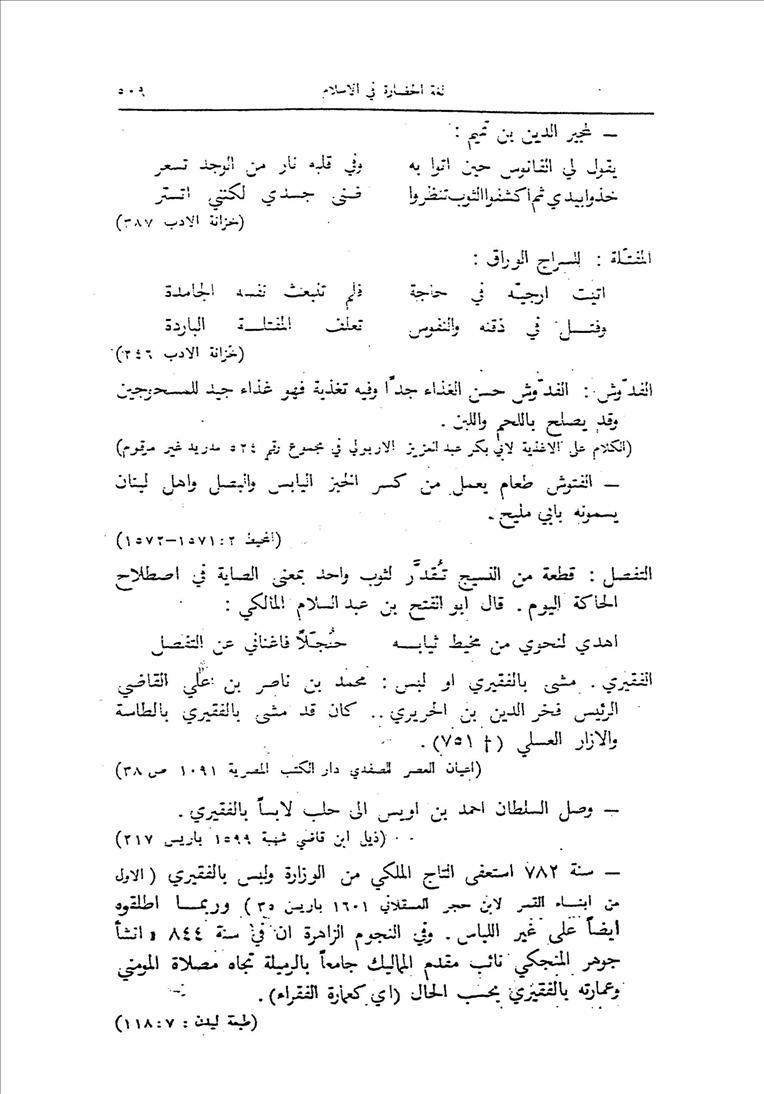 لغة الحضارة في الاسلام ٥٠٩
— لمجير الدين بن تميم :
يقول لي الفانوس حين اتوا به وفي قلبه نار من الوجد تسعر
خذوا بيدي ثم اكشفوا الثوب تنظروا فنى جسدي لكنني اتستر
(خزانة الادب ٣٨٧)
المفتلة : للسراج الوراق :
اتيت ارجيه في حاجة فلم تنبعث نفسه الجامدة
وفتل في ذقنه والنفوس تعلف المفتلة الباردة
(خزانة الادب ٢٤٦)
الفدّوش : الفدّوش حسن الغذاء جدًا وفيه تغذية فهو غذاء جيد للمسحوجين
وقد يصلح باللحم واللبن .
(الكلام على الاغذية لابي بكر عبد العزيز الاربولي في مجموع رقم ٥٢٤ مدريد غير مرقوم)
— الفتوش طعام يعمل من كسر الخبز اليابس والبصل واهل لبنان
يسمونه بابي مليح .
(المحيط ٢ : ١٥٧١–١٥٧٢)
التفصل : قطعة من النسيج تُقدَّر لثوب واحد بمعنى الصاية في اصطلاح
الحاكة اليوم . قال ابو الفتح بن عبد السلام المالكي :
اهدي لنحوي من مخيط ثيابه فاغناني عن التفصل
الفقيري . مشى بالفقيري او لبس : محمد بن ناصر بن علي القاضي
الرئيس فخر الدين بن الحريري .. كان قد مشى بالفقيري بالطاسة
والازار العسلي († ٧٥١) .
(اعيان العصر للصفدي دار الكتب المصرية ١٠٩١ ص ٣٨)
— وصل السلطان احمد بن اويس الى حلب لابساً بالفقيري .
(ذيل ابن قاضي شهبة ١٥٩٩ باريس ٢١٧)
— سنة ٧٨٢ استعفى التاج الملكي من الوزارة ولبس بالفقيري (الاول
من ابناء الغمر لابن حجر العسقلاني ١٦٠١ باريس ٣٥) وربما اطلقوه
ايضاً على غير اللباس . وفي النجوم الزاهرة ان في سنة ٨٤٤ « انشأ
جوهر المنجكي نائب مقدم المماليك جامعاً بالرميلة تجاه مصلاة المومني
وعمارته بالفقيري بحسب الحال (اي كعمارة الفقراء) .
(طبعة ليدن : ٧ : ١١٨)